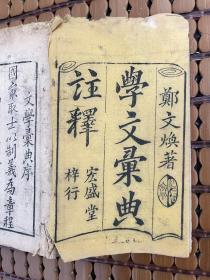 鄭文煥著
學文彙典
註釋
宏盛堂
梓行
文學彙典序
國家取士以制義為章程